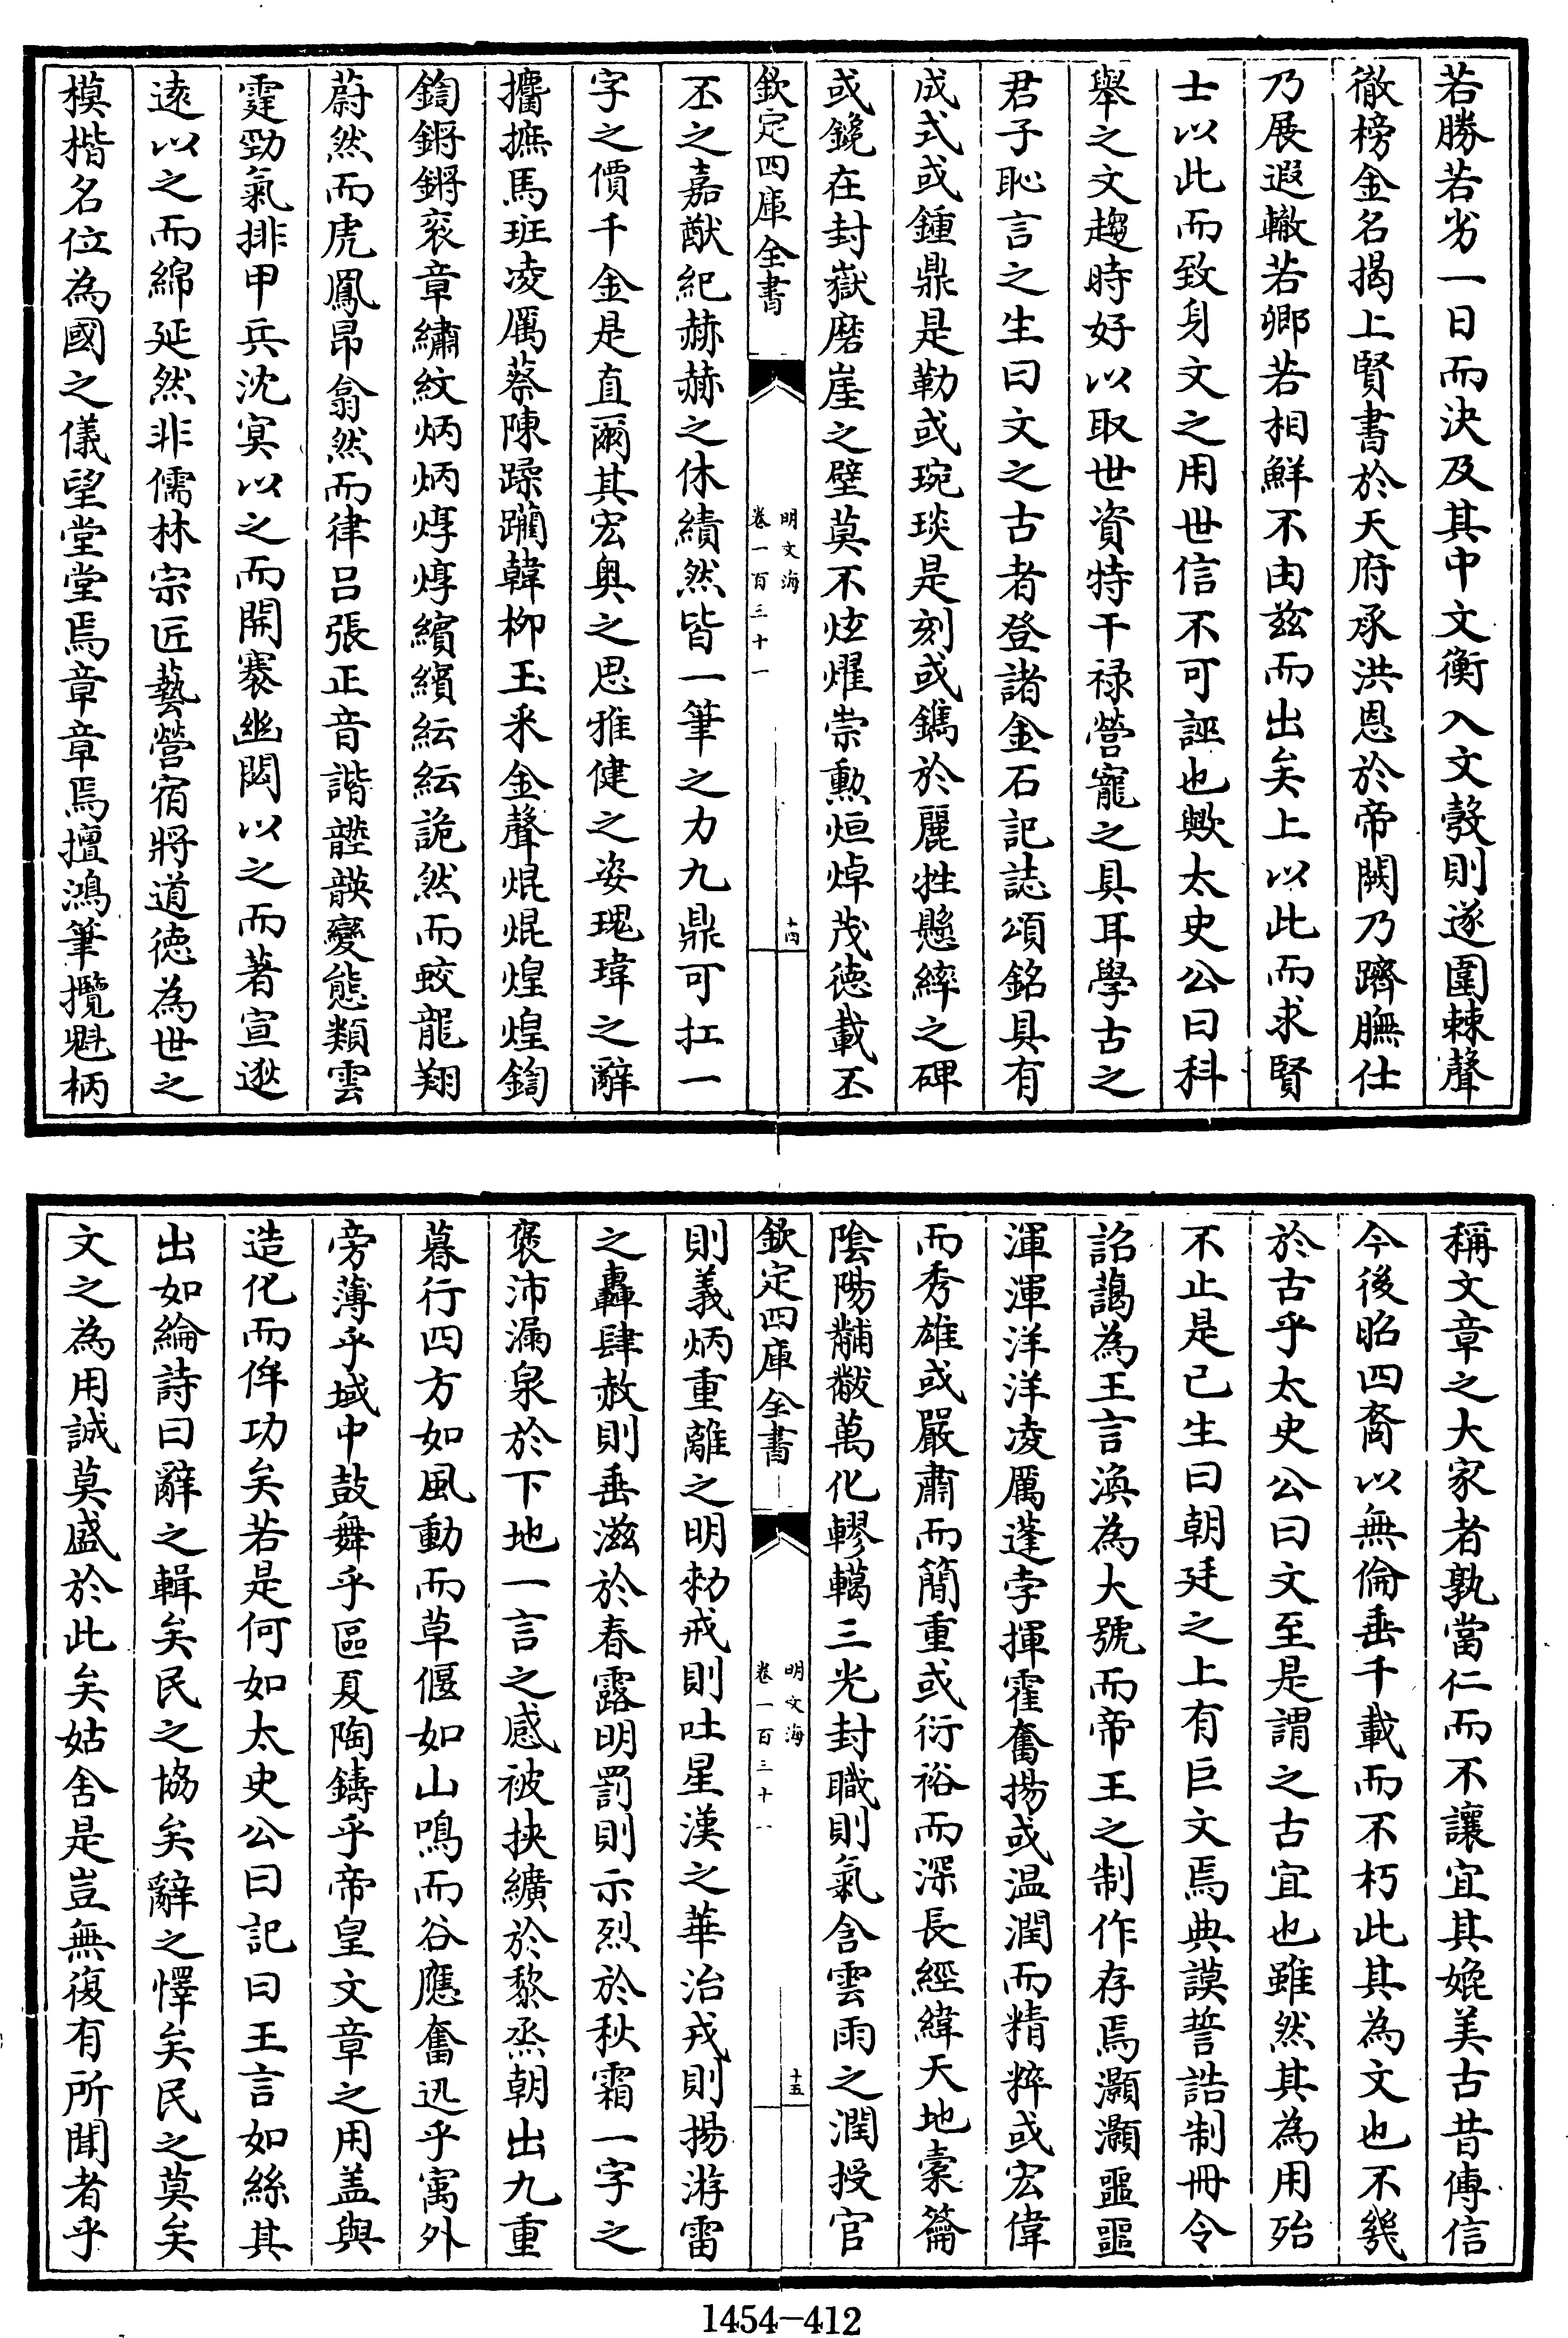 若勝若劣一日而決及其中文衡入文彀則遂圍棘聲
徹榜金名揭上賢書於天府承洪恩於帝闕乃躋膴仕
乃展遐轍若卿若相鮮不由茲而出矣上以此而求賢
士以此而致身文之用世信不可誣也歟太史公曰科
舉之文趨時好以取世資特干祿營寵之具耳學古之
君子恥言之生曰文之古者登諸金石記誌頌銘具有
成式或鍾鼎是勒或琬琰是刻或鐫於麗牲懸繂之碑
或鑱在封嶽磨崖之壁莫不炫燿崇勲烜焯茂德載丕
欽定四庫全書
明文海
卷一百三十一
十四
丕之嘉猷紀赫赫之休績然皆一筆之力九鼎可扛一
字之價千金是直爾其宏奥之思雅健之姿瑰瑋之辭
攟摭馬班凌厲蔡陳蹂躪韓柳玉釆金聲焜焜煌煌鍧
鍧鏘鏘衮章繡紋炳炳焞焞繽繽紜紜詭然而蛟龍翔
蔚然而虎鳳昂翕然而律吕張正音諧韺變態類雲
霆勁氣排甲兵沈冥以之而開褰幽閟以之而著宣逖
逺以之而綿延然非儒林宗匠藝營宿將道徳為世之
模楷名位為國之儀望堂堂焉章章焉擅鴻筆攬魁柄
稱文章之大家者孰當仁而不讓宜其媲美古昔傳信
今後昭四裔以無倫垂千載而不朽此其為文也不幾
於古乎太史公曰文至是謂之古宜也雖然其為用殆
不止是已生曰朝廷之上有巨文焉典謨誓誥制冊令
詔藹為王言渙為大號而帝王之制作存焉灝灝噩噩
渾渾洋洋凌厲蓬孛揮霍奮揚或温潤而精粹或宏偉
而秀雄或嚴肅而簡重或衍裕而深長經緯天地橐籥
陰陽黼黻萬化轇轕三光封職則氣含雲雨之潤授官
欽定四庫全書
明文海
卷一百三十一
十五
則義炳重離之明勑戒則吐星漢之華治戎則揚洊雷
之轟肆赦則垂滋於春露明罰則示烈於秋霜一字之
褒沛漏泉於下地一言之感被挾纊於黎烝朝出九重
暮行四方如風動而草偃如山鳴而谷應奮迅乎寓外
旁薄乎域中鼓舞乎區夏陶鑄乎帝皇文章之用盖與
造化而侔功矣若是何如太史公曰記曰王言如絲其
出如綸詩曰辭之輯矣民之協矣辭之懌矣民之莫矣
文之為用誠莫盛於此矣姑舍是豈無復有所聞者乎
1454-412